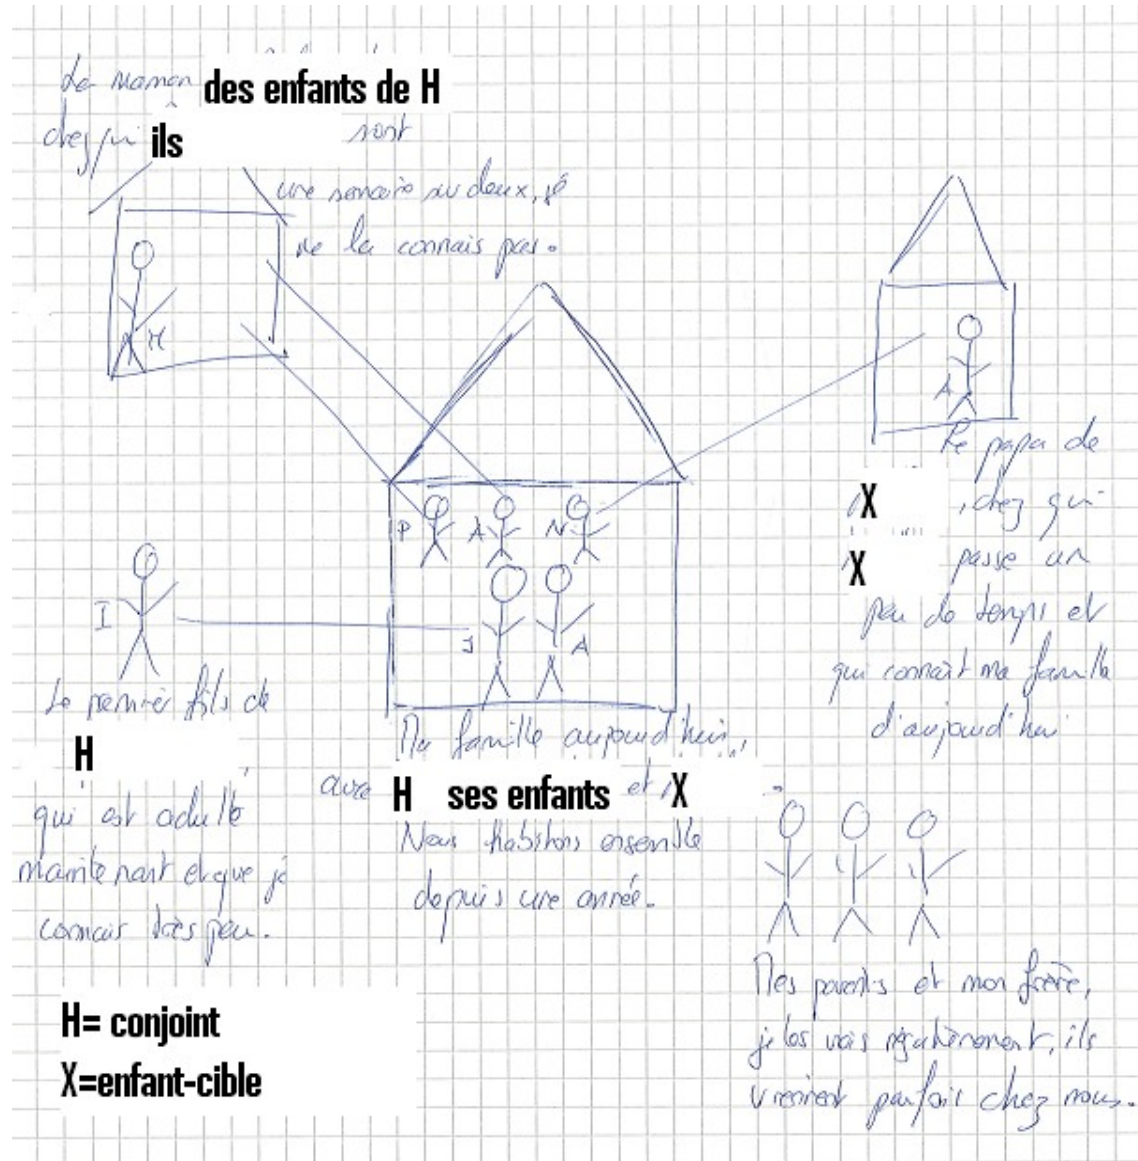 La maman des enfants de H
chez qui ils sont
une semaine sur deux, je
ne la connais pas.
H
A
Le papa de
X, chez qui
X passe un
peu de temps et
qui connaît ma famille
d'aujourd'hui
P A N
J A
I
Le premier fils de
H,
qui est adulte
maintenant et que je
connais très peu.
Ma famille aujourd'hui,
avec H ses enfants et X.
Nous habitons ensemble
depuis une année.
Mes parents et mon frère,
je les vois régulièrement, ils
viennent parfois chez nous.
H= conjoint
X=enfant-cible